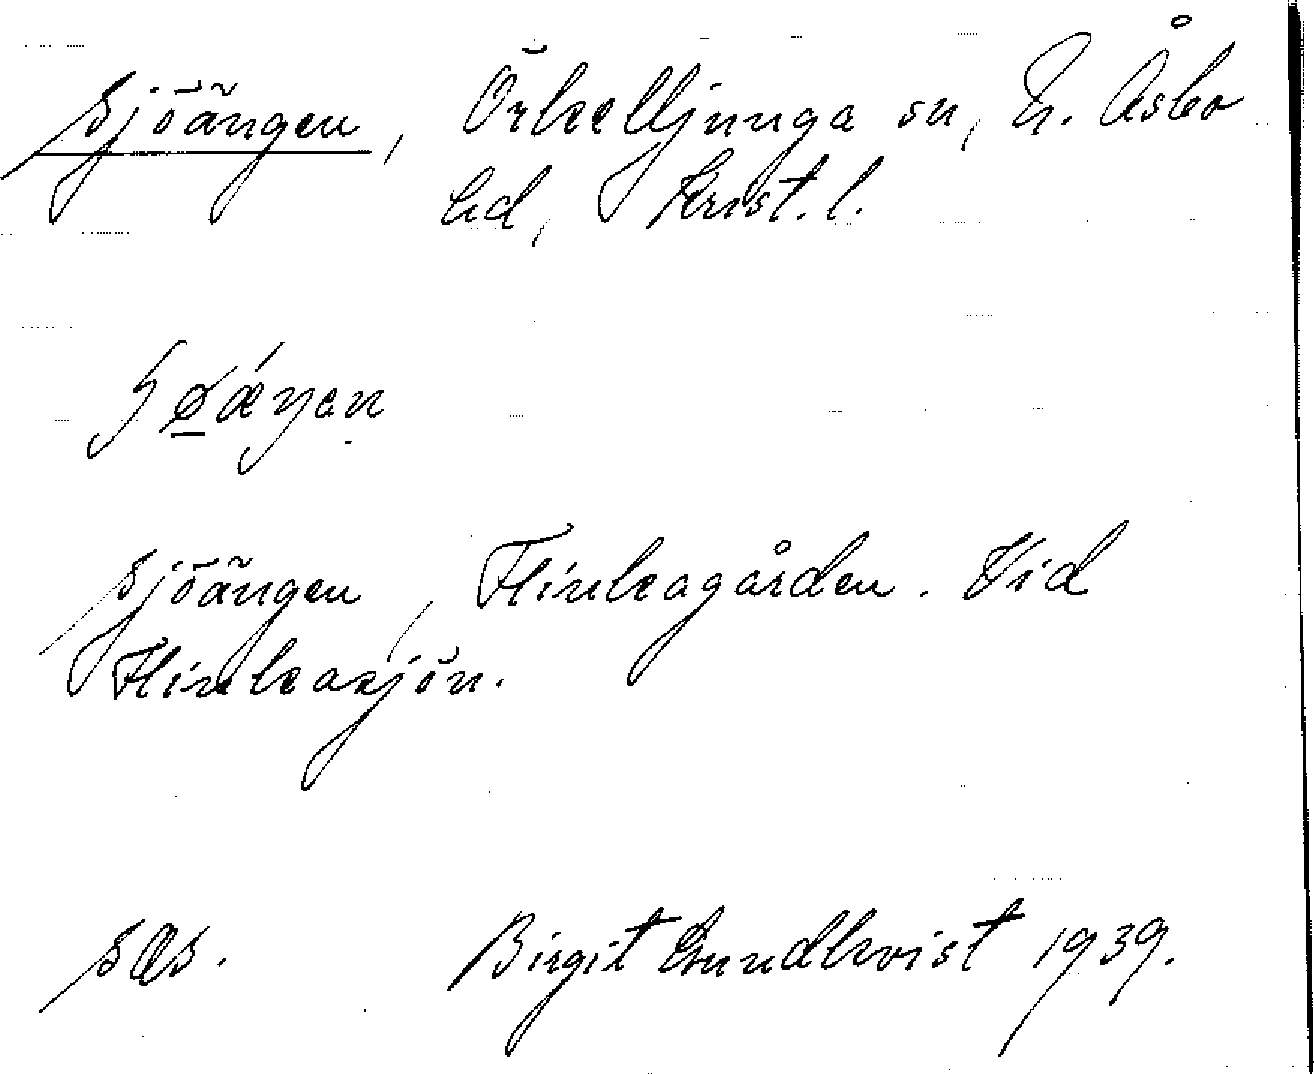 Sjöängen, Örkelljunga sn, N. Åsbo
hd, Krist. l.
Sjöängen, Flinkagården. Vid
Flinkasjön.
sås.
Birgit Lundkvist 1939.